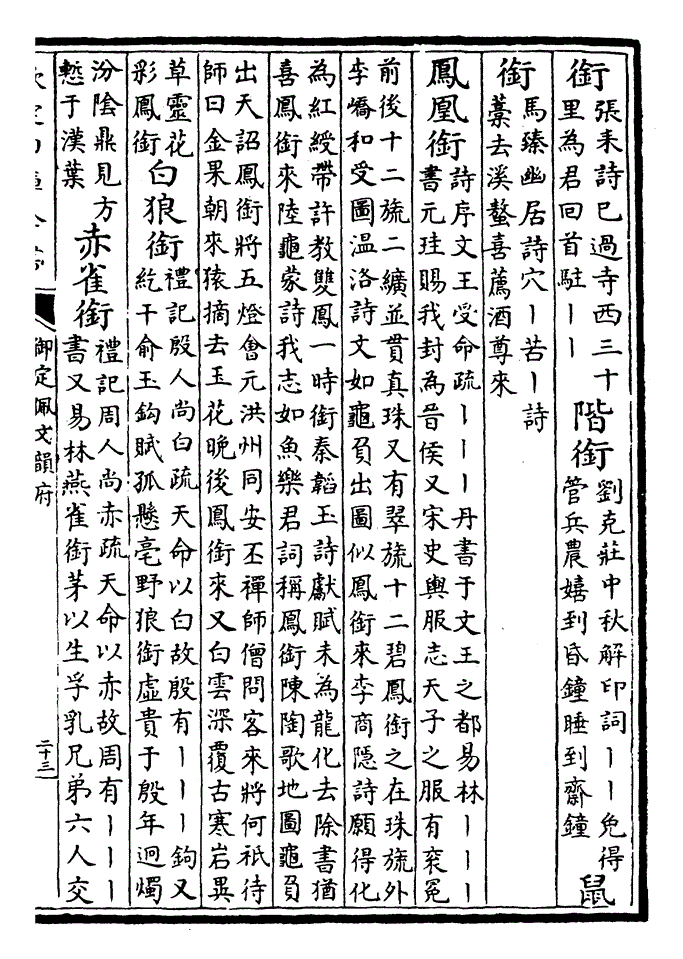 銜
張耒詩已過寺西三十
里為君回首駐丨丨
階銜
劉克莊中秋解印詞丨丨免得
管兵農嬉到昏鐘睡到齋鐘
鼠
銜
馬臻幽居詩穴丨苦丨詩
藁去溪螯喜薦酒尊來
鳳凰銜
詩序文王受命疏丨丨丨丹書于文王之都易林丨丨丨
書元珪賜我封為晉侯又宋史輿服志天子之服有衮冕
前後十二旒二纊並貫真珠又有翠旒十二碧鳳銜之在珠旒外
李嶠和受圖溫洛詩文如龜負出圖似鳳銜來李商隱詩願得化
為紅綬帶許教雙鳳一時銜秦韜玉詩獻賦未為龍化去除書猶
喜鳳銜來陸龜蒙詩我志如魚樂君詞稱鳳銜陳陶歌地圖龜負
出天詔鳳銜將五燈會元洪州同安丕禪師僧問客來將何祇待
師曰金果朝來猿摘去玉花晚後鳳銜來又白雲深覆古寒岩異
草靈花
彩鳳銜
白狼銜
禮記殷人尚白疏天命以白故殷有丨丨丨鉤又
紇干俞玉鈎賦孤懸亳野狼銜虛貴于殷年迥燭
汾陰鼎見方
慙于漢葉
赤雀銜
禮記周人尚赤疏天命以赤故周有丨丨丨
書又易林燕雀銜茅以生孚乳兄弟六人交
御定佩文韻府
二十三